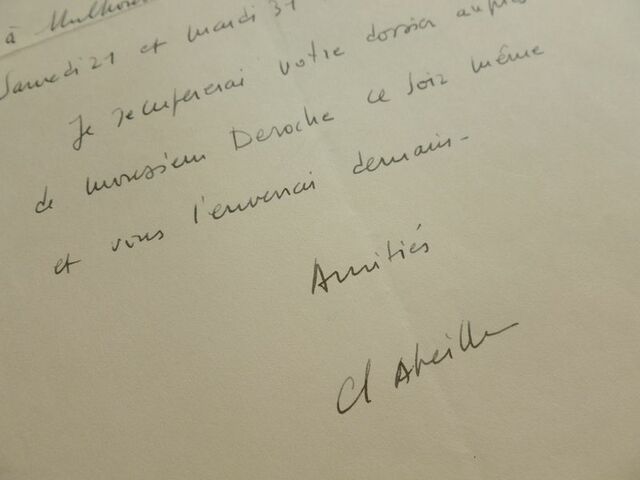 à Mulhouse
Samedi 21 et mardi 31
Je recupererai votre dossier auprès
de monsieur Deroche ce soir même
et vous l'enverrai demain-
Amitiés
Cl Abeille